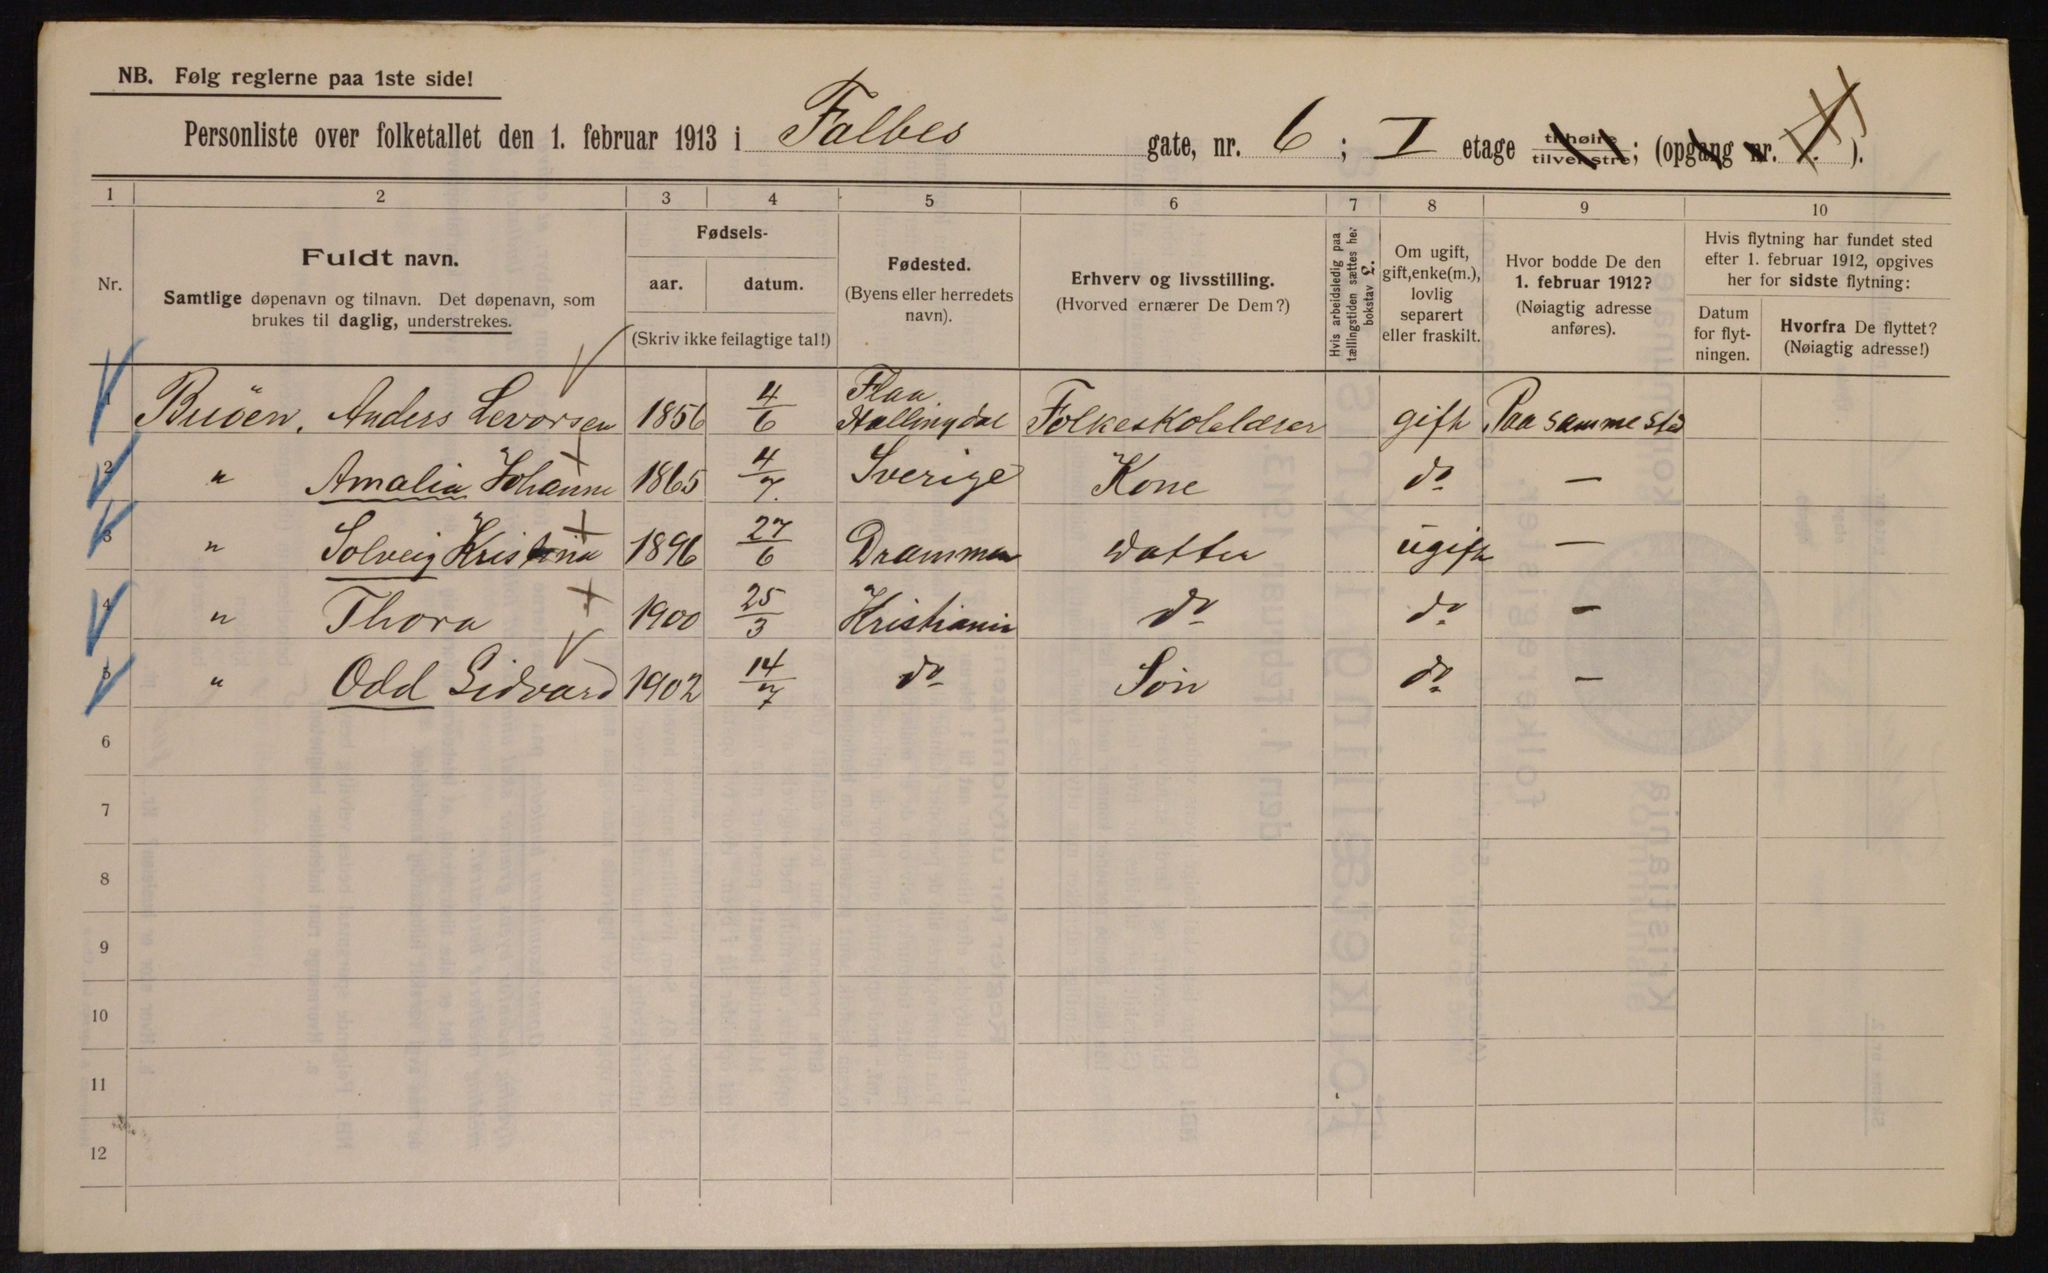 NB. Følg reglerne paa 1ste side!
Personliste over folketallet den 1. februar 1913 i Falbes gate, nr. 6; I etage tilhøire/tilvenstre; (opgang nr. ).
1 2 3 4 5 6 7 8 9 10
Nr.
Fuldt navn.
Samtlige døpenavn og tilnavn. Det døpenavn, som
brukes til daglig, understrekes.
Fødsels-
aar. datum.
(Skriv ikke feilagtige tal!)
Fødested.
(Byens eller herredets
navn).
Erhverv og livsstilling.
(Hvorved ernærer De Dem?)
Hvis arbeidsledig paa
tællingstiden sættes her
bokstav L.
Om ugift,
gift, enke(m.),
lovlig
separert
eller fraskilt.
Hvor bodde De den
1. februar 1912?
(Nøiagtig adresse
anføres).
Hvis flytning har fundet sted
efter 1. februar 1912, opgives
her for sidste flytning:
Datum
for flyt-
ningen.
Hvorfra De flyttet?
(Nøiagtig adresse!)
1 Buøen, Anders Levorsen 1856 4/6 Flaa Hallingdal Folkeskolelærer gift Paa samme sted
2 " Amalia Johanne 1865 4/7. Sverige Kone do —
3 " Solveig Kristina 1896 27/6 Drammen datter ugift —
4 " Thora 1900 25/3 Kristiania do do —
5 " Odd Sidvard 1902 14/7 do Søn do —
6
7
8
9
10
11
12